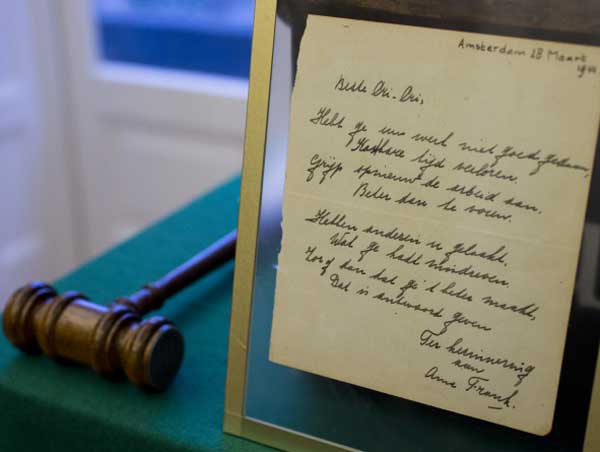 Amsterdam 28 Maart
Beste Cri-Cri,
Hebt ge uw werk niet goed gedaan,
Kostbare tijd verloren,
Grijp opnieuw de arbeid aan.
Beter dan te voren.
Hebben anderen u gelaakt,
Wat ge hadt misdreven,
Zorg dan dat ge 't beter maakt,
Dat is antwoord geven
Ter herinnering
aan
Anne Frank.